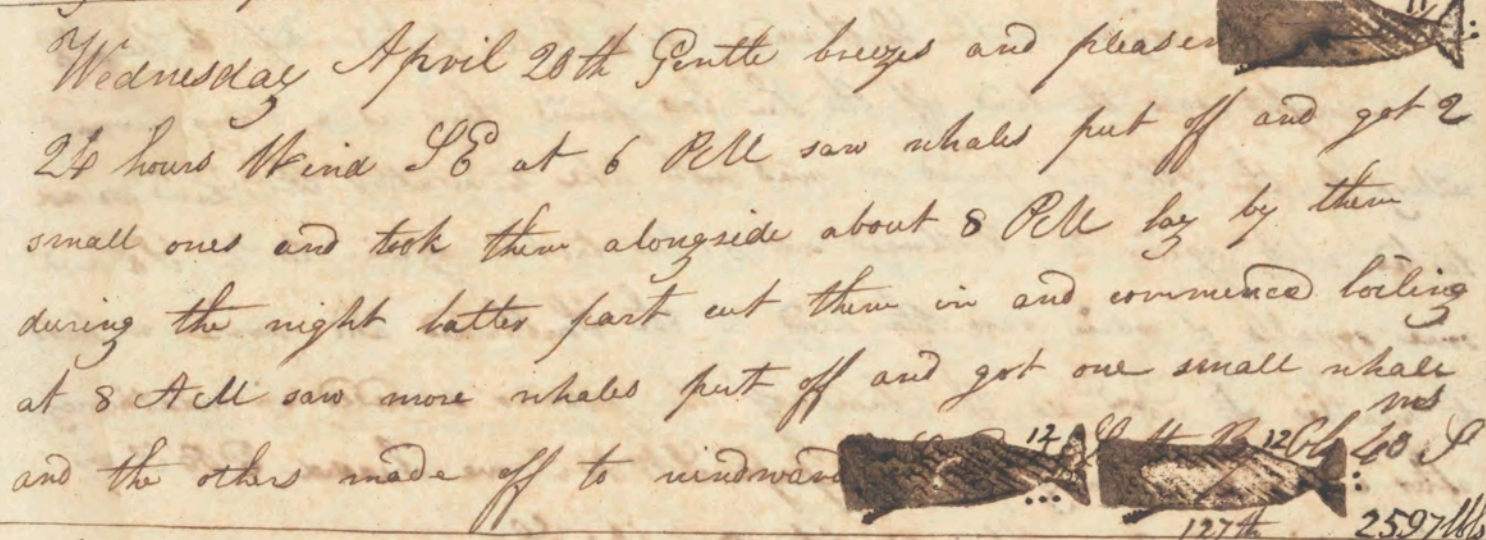 Wednesday April 20th Gentle breezes and pleasen
24 hours Wind SE at 6 PM saw whales put off and got 2
small ones and took them alongside about 8 PM lay by them
during the night latter part cut them in and commenced boiling
at 8 AM saw more whales put off and got one small whale
and the others made off to windward 12 12 40 S
127th 2597 bbls